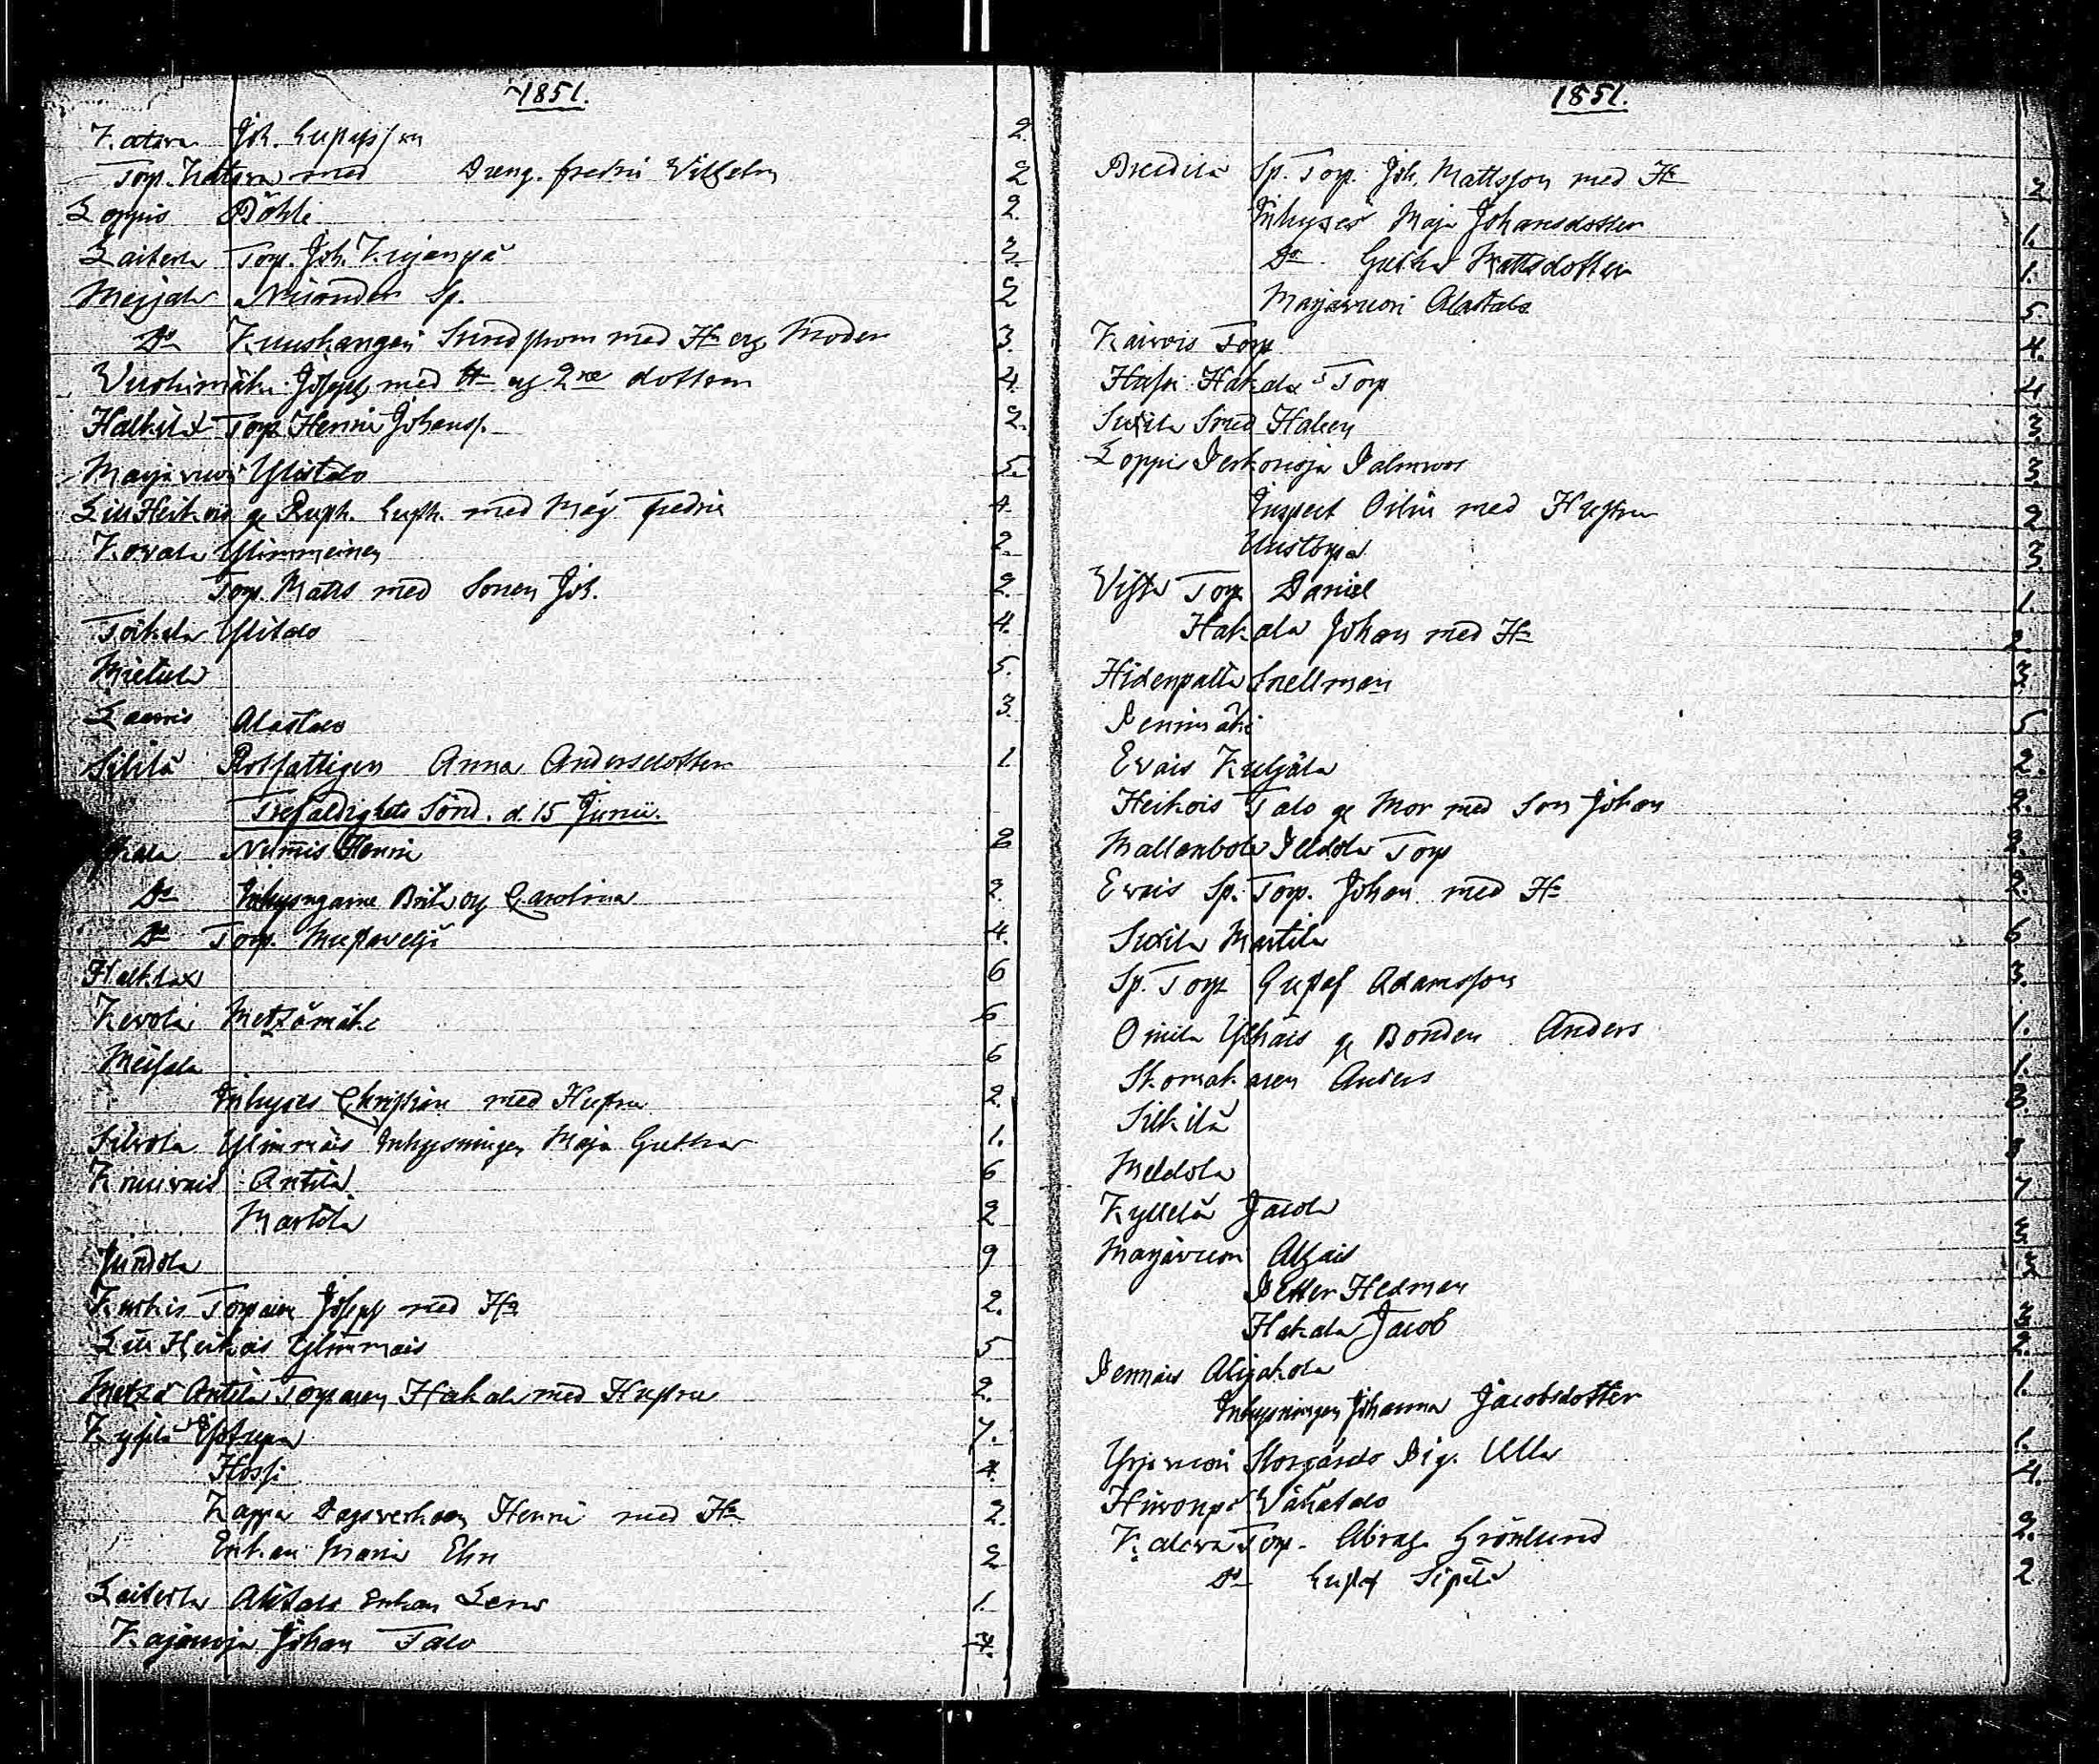 1851.
Katava Joh. Gustafsson 2.
Torp. Katava med Dreng. Fredric Vilhelm 2
Loppis Böhle 2.
Laiterla Torp. Joh. Kujanpä 3.
Meijala Niinonder Sp. 2
Do Kuuskangas Sundstrom med Ha og Moder 3.
Vuorimäki Joseph med Ha og 2ne dottrar 4.
Halkilax Torp Henric Johanss. 2.
Marjävuori Ylistalo 5.
Liu Heikois g. Rusth. Gusth. med Måg Fredric 4.
Kovala Ylimmeinen 2.
Torp. Matts med Sonen Joh. 2.
Toikala Ylitalo 4.
Mietula 5.
Laurois Alastalo 3.
Sikilä Rotfattigen Anna Andersdotter 1
Trefaldighets Sönd. d. 15 Junii.
Nummis Henric 2
Do Inhysingarne Brita og Carolina 2.
Do Torp. Mustaveljé 4.
Halkilax 6
Kevola Metzämäki 6
Meisala 6
Inhyses Christian med Hustru 2.
Silvola Ylimmäis Inhysningen Maja Gretha 1.
Kruuvais Antila 6
Martila 2
Jundola 9
Kurkis Torparen Joseph med Ha 2.
Liu Heikois Ylimmais 5
Metzä Antila Torparen Hakala med Hustru 2.
Kyssilä Ylöstupa 7.
Hossi 4.
Kappa Dagsverkaren Henric med Ha 2.
Enkan Maria Elin 2
Laiterla Alitalo Enkan Lena 1.
Kajanoja Johan Talo 4.
1851.
Predila Sp. Torp. Joh. Mattsson med Ha 2
Inhyses Maja Johansdotter 1.
Do Gretha Mattsdotter 1.
Marjävuori Alastalo 5.
Kairois Torp 4.
Hassi Hakala Torp 4
Suxila Smed Halen 3.
Loppis Perkonoja Palmroos 3.
Inspect Oilin med Hustru 2.
Uusitupa 3.
Vista Torp Daniel 1.
Hakala Johan med Ha 2.
Hidenpalta Snellman 3
Penimäki 5
Evais Kuljala 2.
Heikois Talo g. Mor med Son Johan 2.
Mallenbola Peldola Torp 3.
Evais Sp. Torp. Johan med Ha 2.
Suxila Martila 6
Sp. Torp Gustaf Adamsson 3.
Omila Ylhäis g. Bonden Anders 1.
Skomakaren Anders 1.
Silkilä 3.
Meldola 3
Kyllelä Jacola 7
Marjävuori Alhais 3.
Petter Hedman 3
Hakala Jacob 3
Pennais Alijakola 2.
Inhysningen Johanna Jacobsdotter 1.
Yrjävuori Storgårds Pig. Ulla 1.
Hiivonpä Vähätalo 4.
Kaleva Torp. Abrah. Grönlund 2.
Do Gustaf Sipilä 2